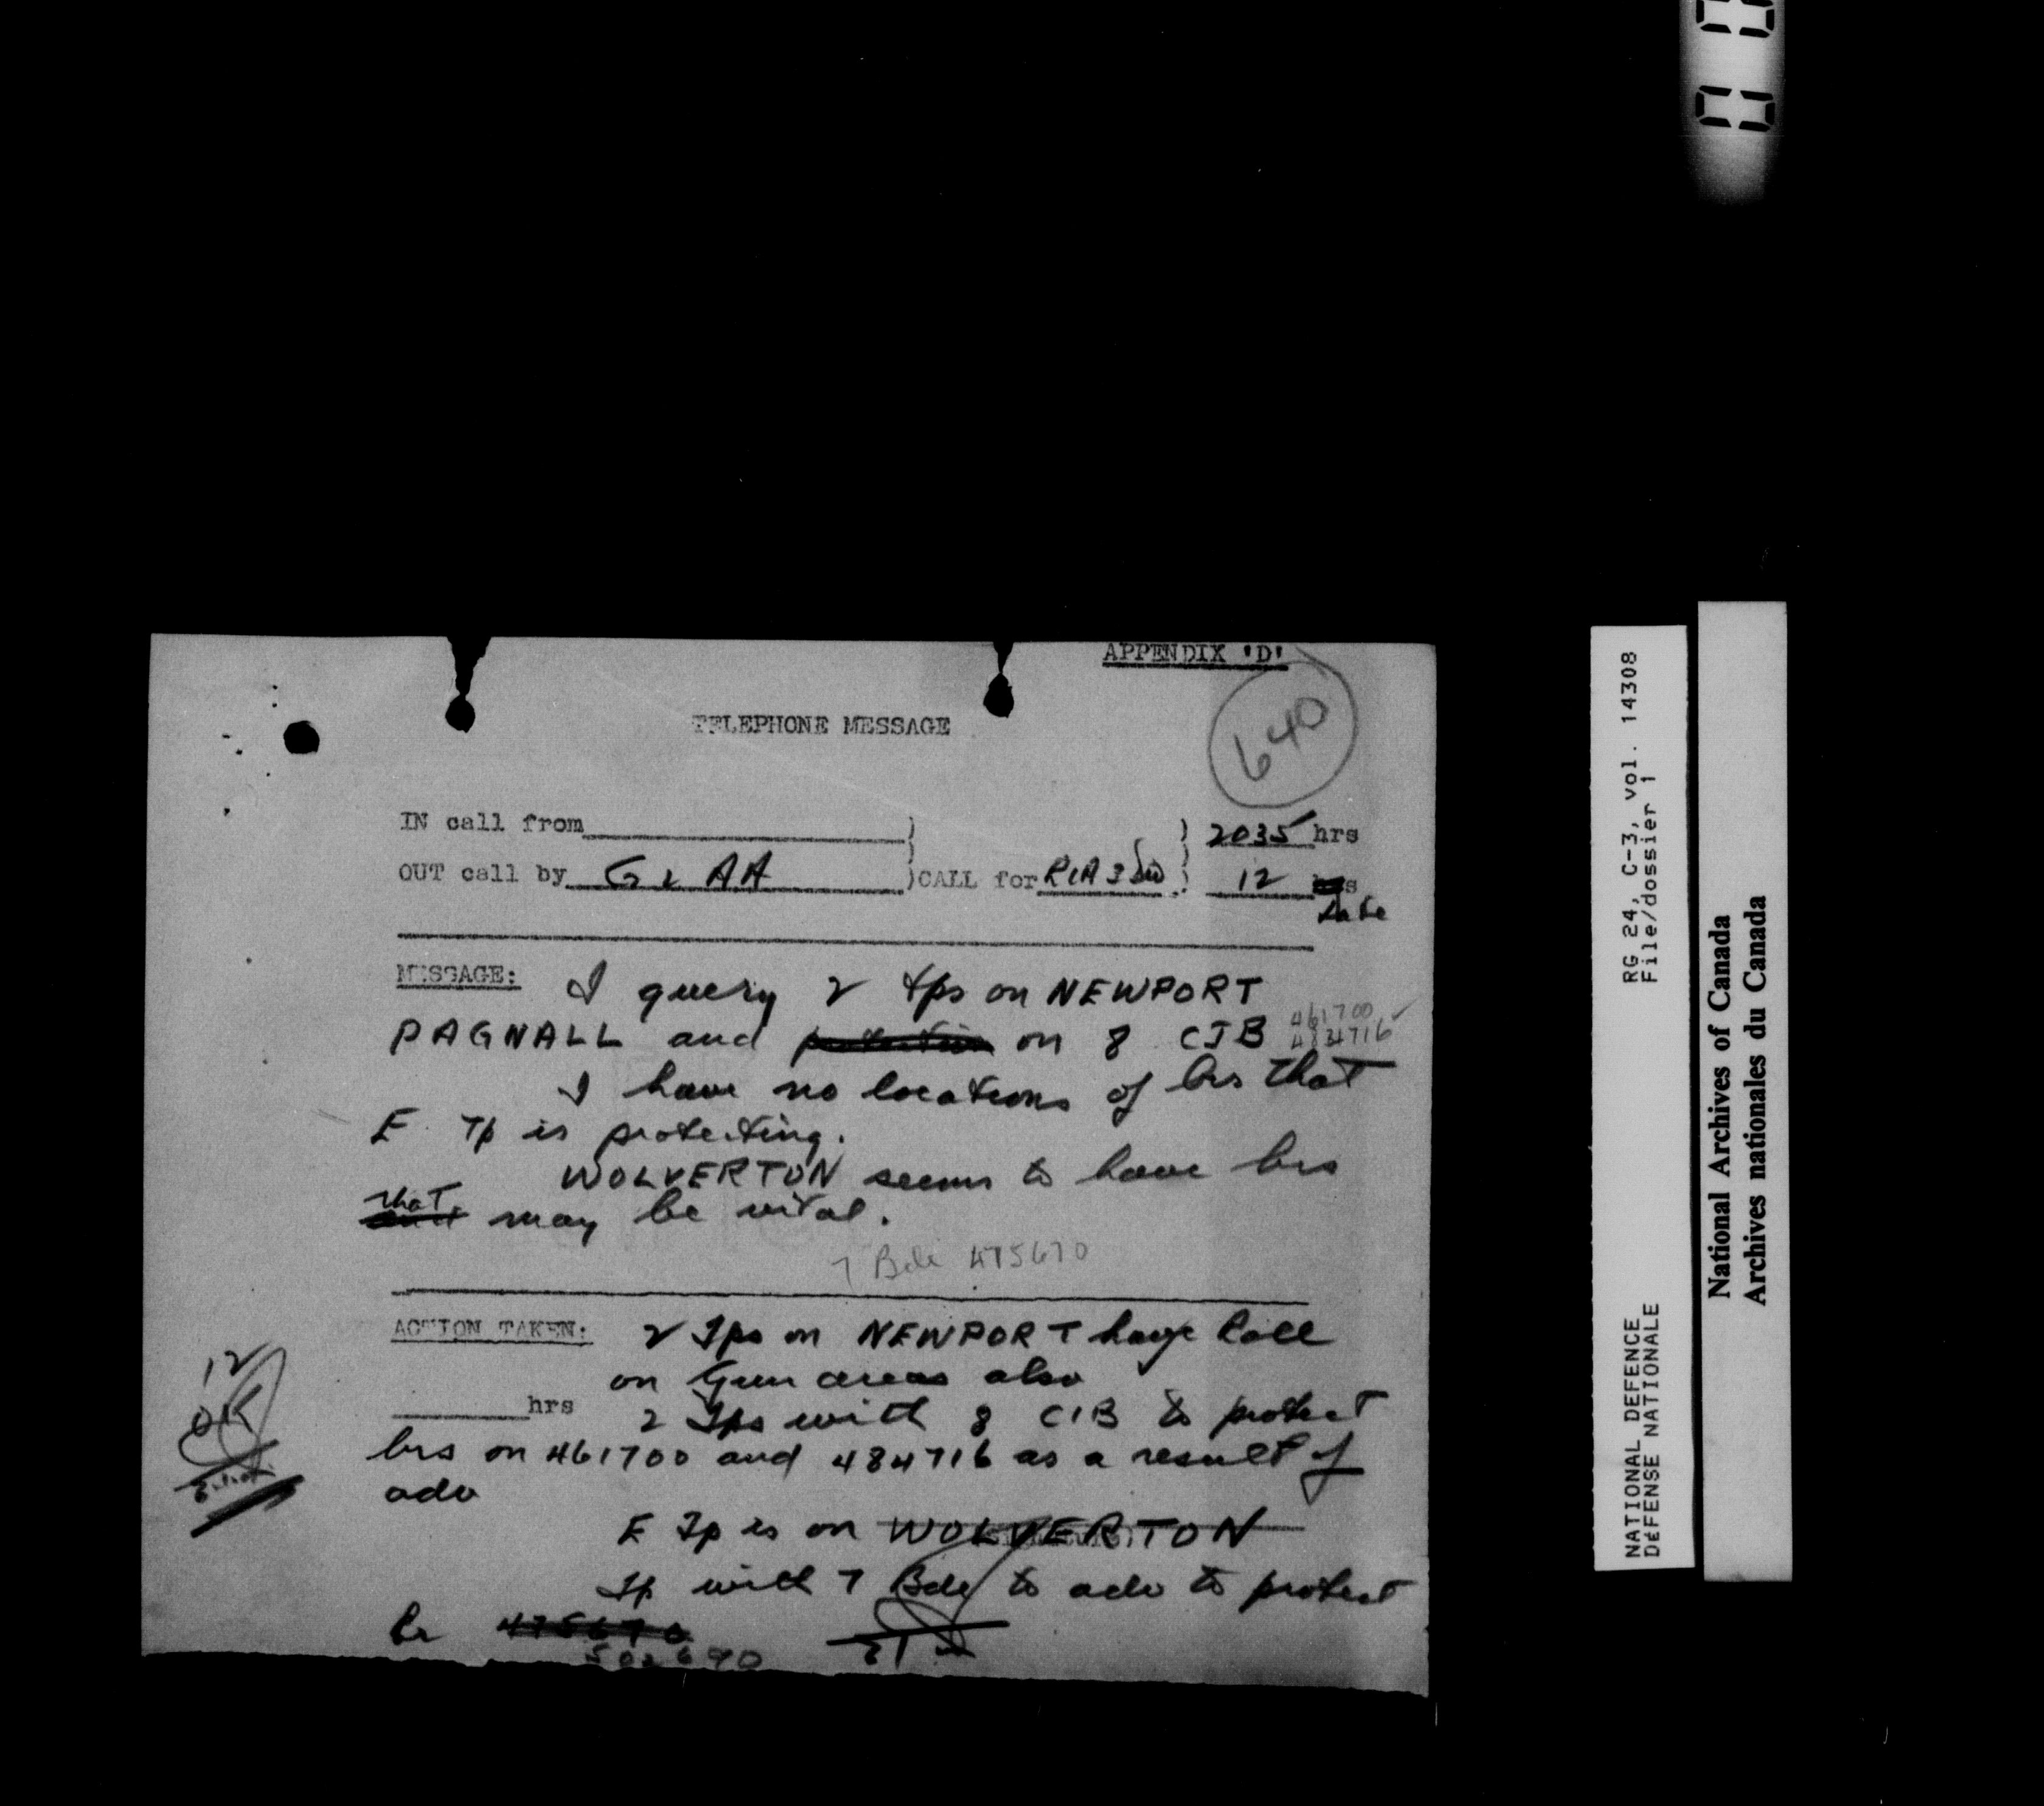 APPENDIX 'D'
640
TELEPHONE MESSAGE
IN call from 2035 hrs
OUT call by G2 AA CALL for 12
Date
MESSAGE: I query 2 tps on NEWPORT
PAGNALL and on 8 CIB 461700
484716
I have no locations of brs that
E Tp is protecting.
WOLVERTON seems to have brs
that may be vital.
7 Bde 475670
ACTION TAKEN: 2 Tps on NEWPORT have
on Gun areas also
hrs 2 Tps with 8 CIB to protect
brs on 461700 and 484716 as a result of
adv
E Tp is on WOLVERTON
Tp with 7 Bde to adv to protect
br 475670
502690
12
OK
RG 24, C-3, vol. 14308
File/dossier 1
NATIONAL DEFENCE
DÉFENSE NATIONALE
National Archives of Canada
Archives nationales du Canada